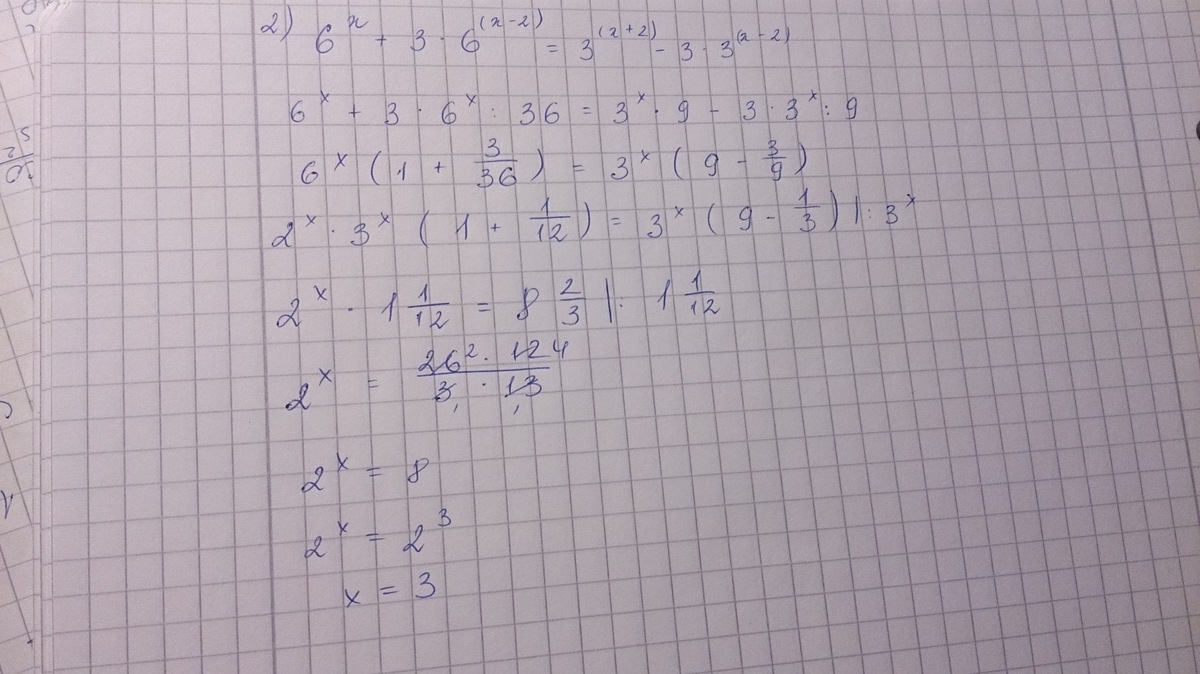 2) 6^x + 3 · 6^(x-2) = 3^(x+2) - 3 · 3^(x-2)
6^x + 3 · 6^x : 36 = 3^x · 9 - 3 · 3^x : 9
6^x (1 + 3/36) = 3^x (9 - 3/9)
2^x · 3^x (1 + 1/12) = 3^x (9 - 1/3) |: 3^x
2^x · 1 1/12 = 8 2/3 |: 1 1/12
2^x = 26² · 12 4 / 3 · 13
2^x = 8
2^x = 2^3
x = 3